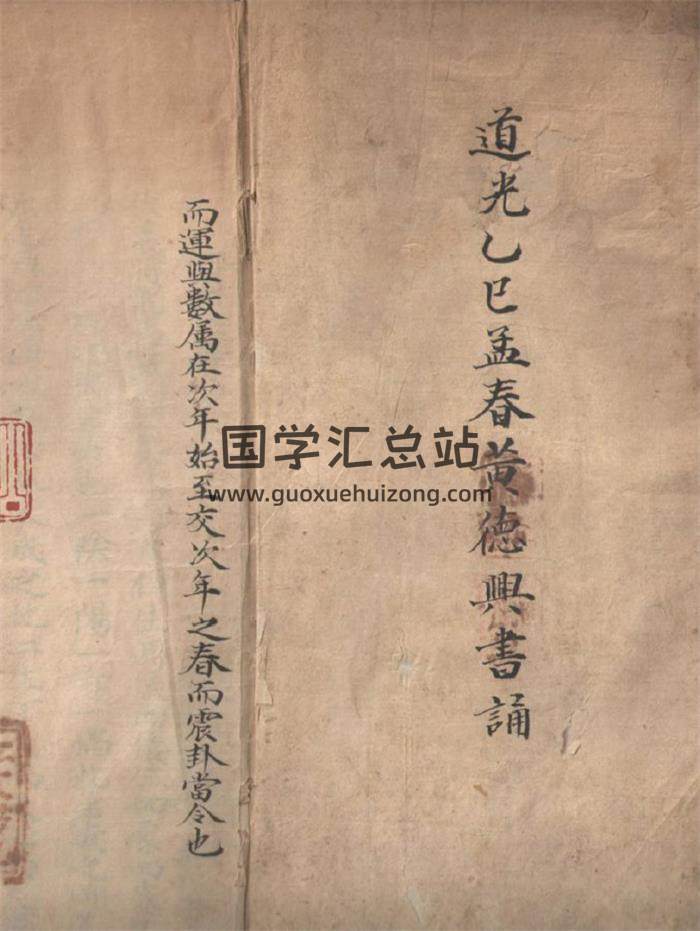 道光乙巳孟春黃德興書誦
而運與數属在次年始至交次年之春而震卦當令也
国学汇总站
www.guoxuehuizong.com